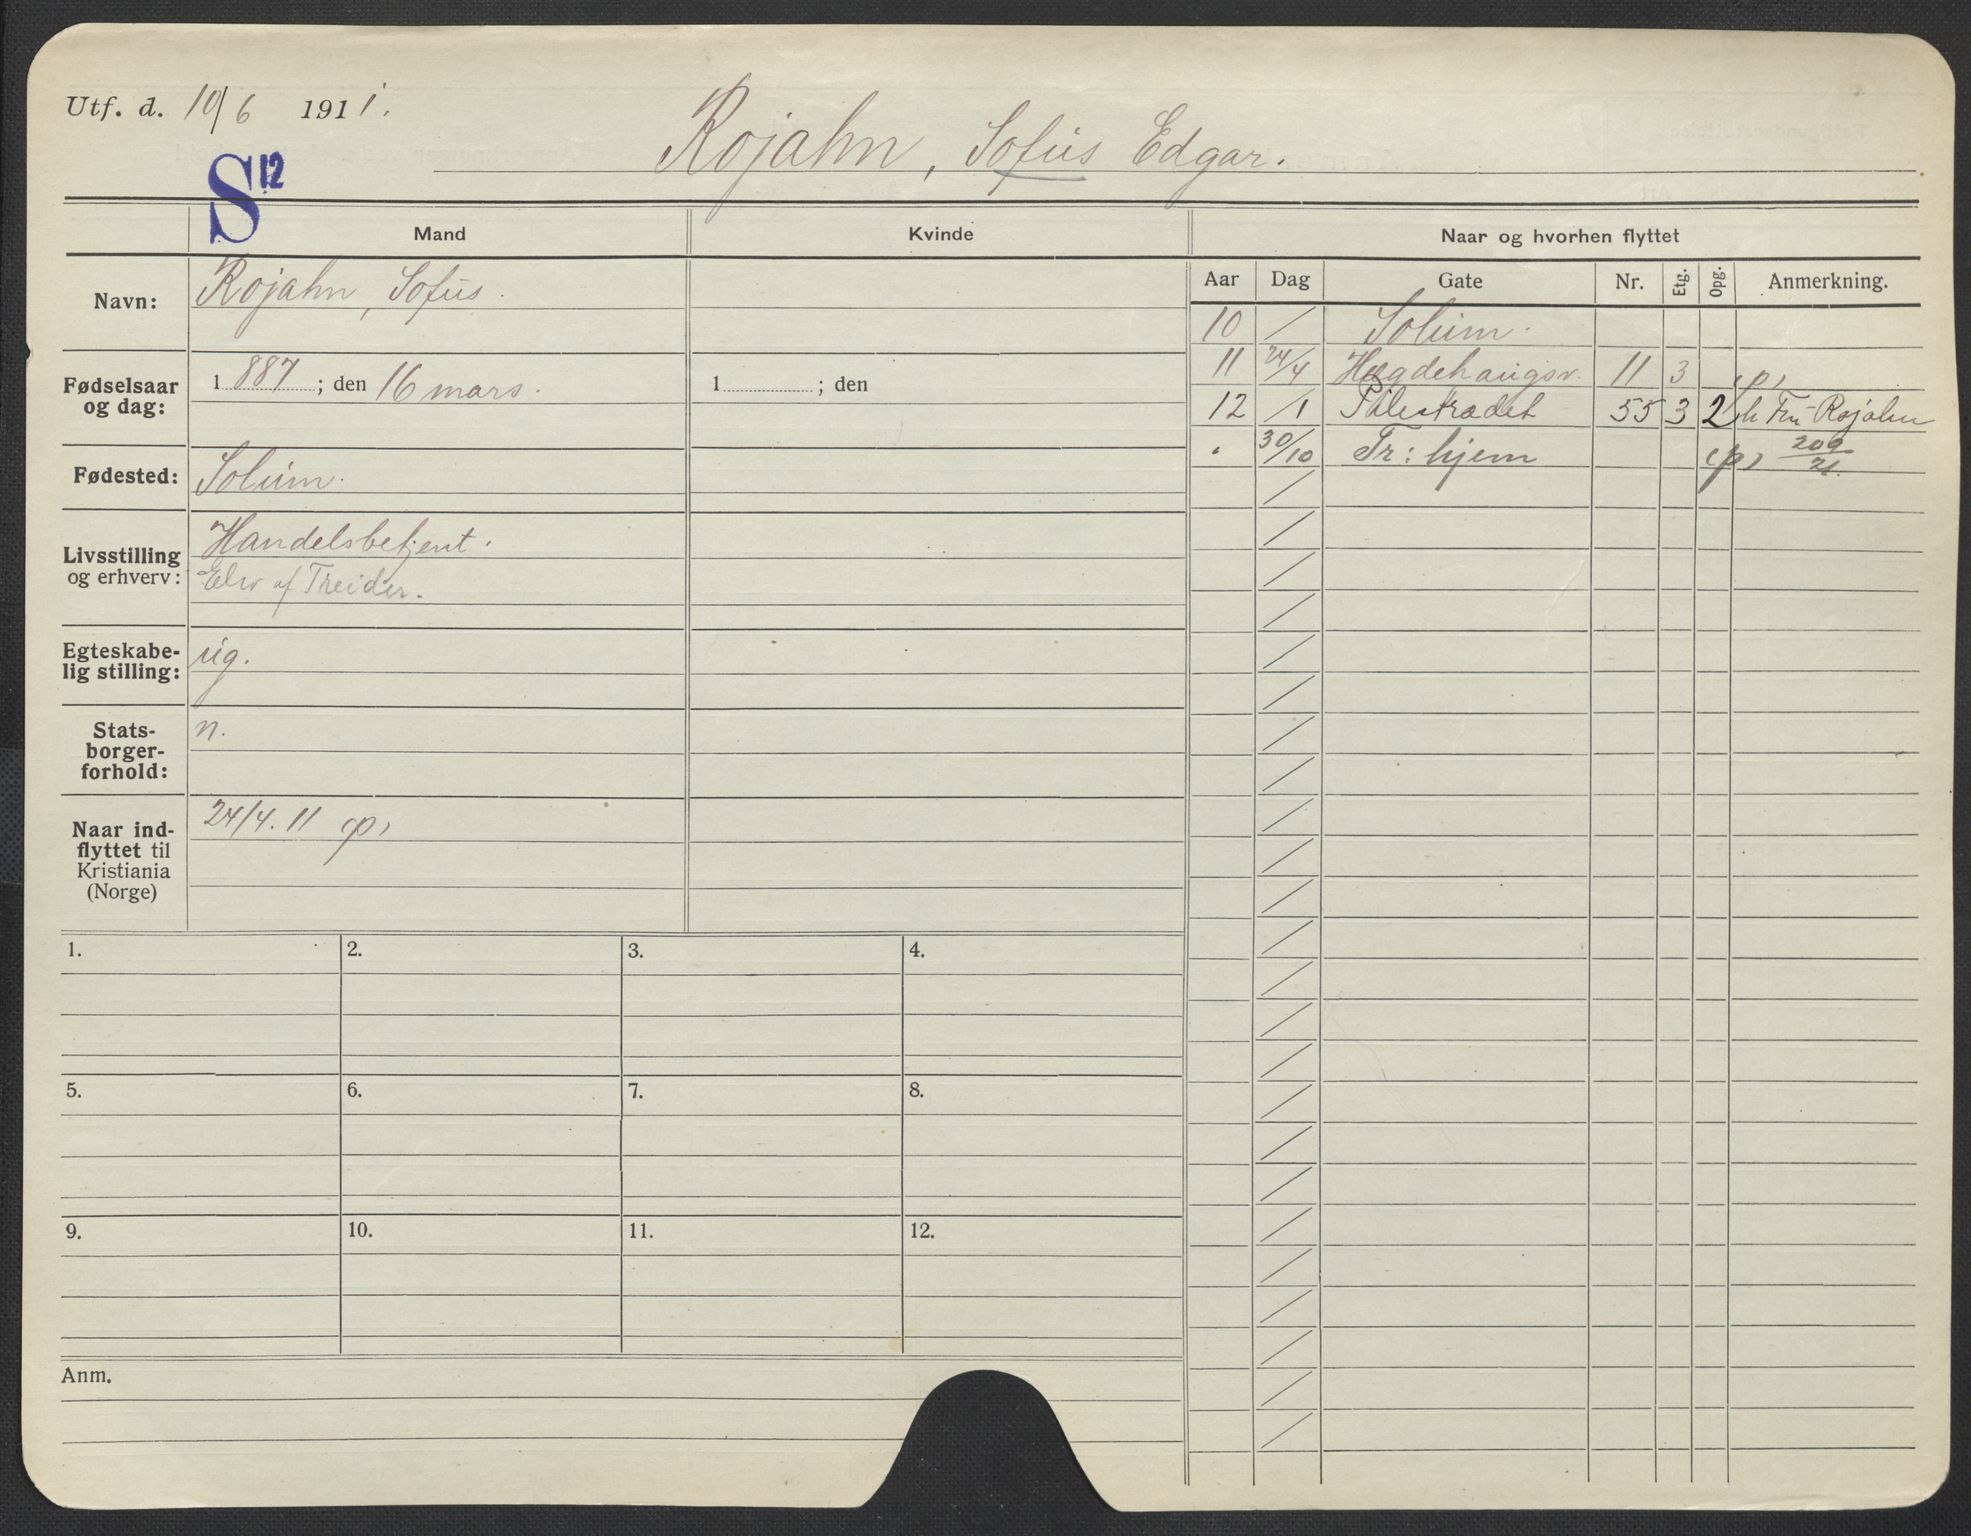 Utf. d. 10/6 1911.
Rojahn, Sofus Edgar.
S 12
Mand
Kvinde
Naar og hvorhen flyttet
Navn: Rojahn, Sofus.
Fødselsaar og dag: 1887; den 16 mars. 1 ; den
Fødested: Solum.
Livsstilling og erhverv: Handelsbetjent.
Elev af Treider.
Egteskabe-
lig stilling: ug.
Stats-
borger-
forhold: n.
Naar ind-
flyttet til
Kristiania
(Norge) 24/4. 11 (p)
Aar Dag Gate Nr. Etg. Opg. Anmerkning.
10 / Solum.
11 24/4 Hægdehaugsv. 11 3 (p)
12 /1 Pilestrædet 55 3 2 h Fru Rojahn
" 30/10 Tr: hjem (p) 209/21.
1. 2. 3. 4.
5. 6. 7. 8.
9. 10. 11. 12.
Anm.